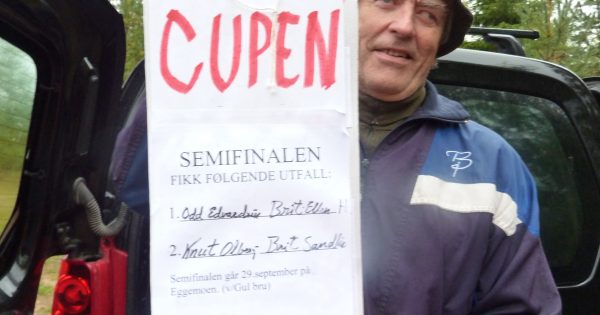 CUPEN
SEMIFINALEN
FIKK FØLGENDE UTFALL:
1. Odd Edvardsen Brit Ellen H
2. Knut Olberg - Brit Sandlie
Semifinalen går 29.september på
Eggemoen. (v/Gul bru)